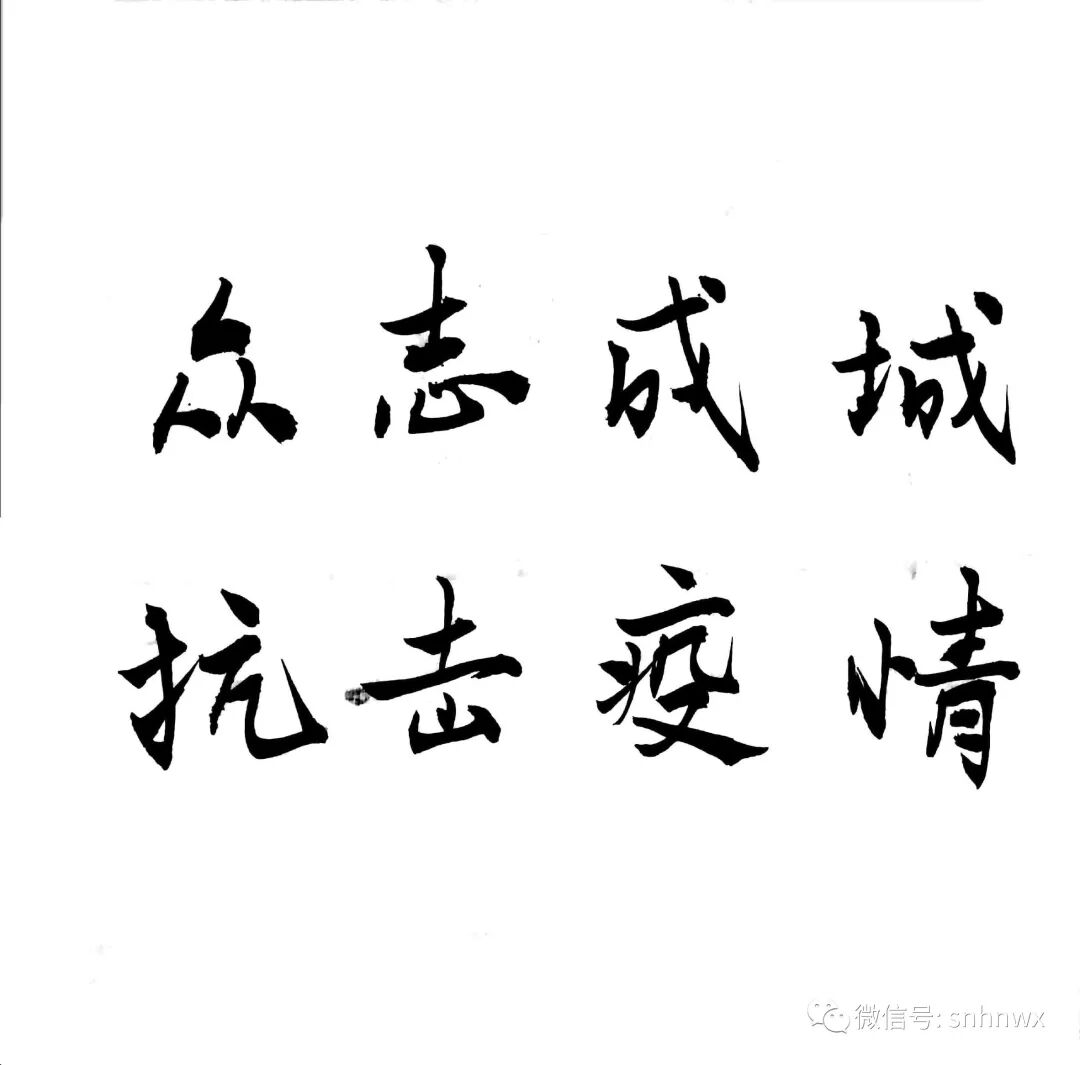 众志成城
抗击疫情
微信号: snhnwx